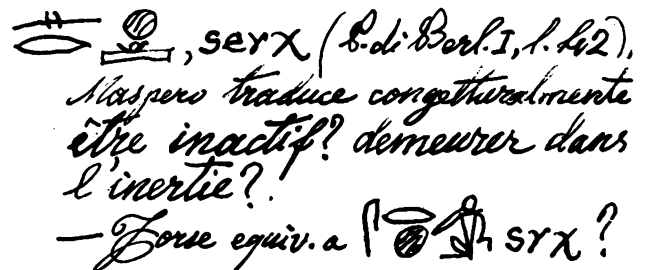 𓊃𓂋𓐍𓏛, serχ (P. di Berl. I, l. 42),
Maspero traduce congetturalmente
être inactif? demeurer dans
l'inertie?.
— Forse equiv. a 𓋴𓂋𓐍 srχ?